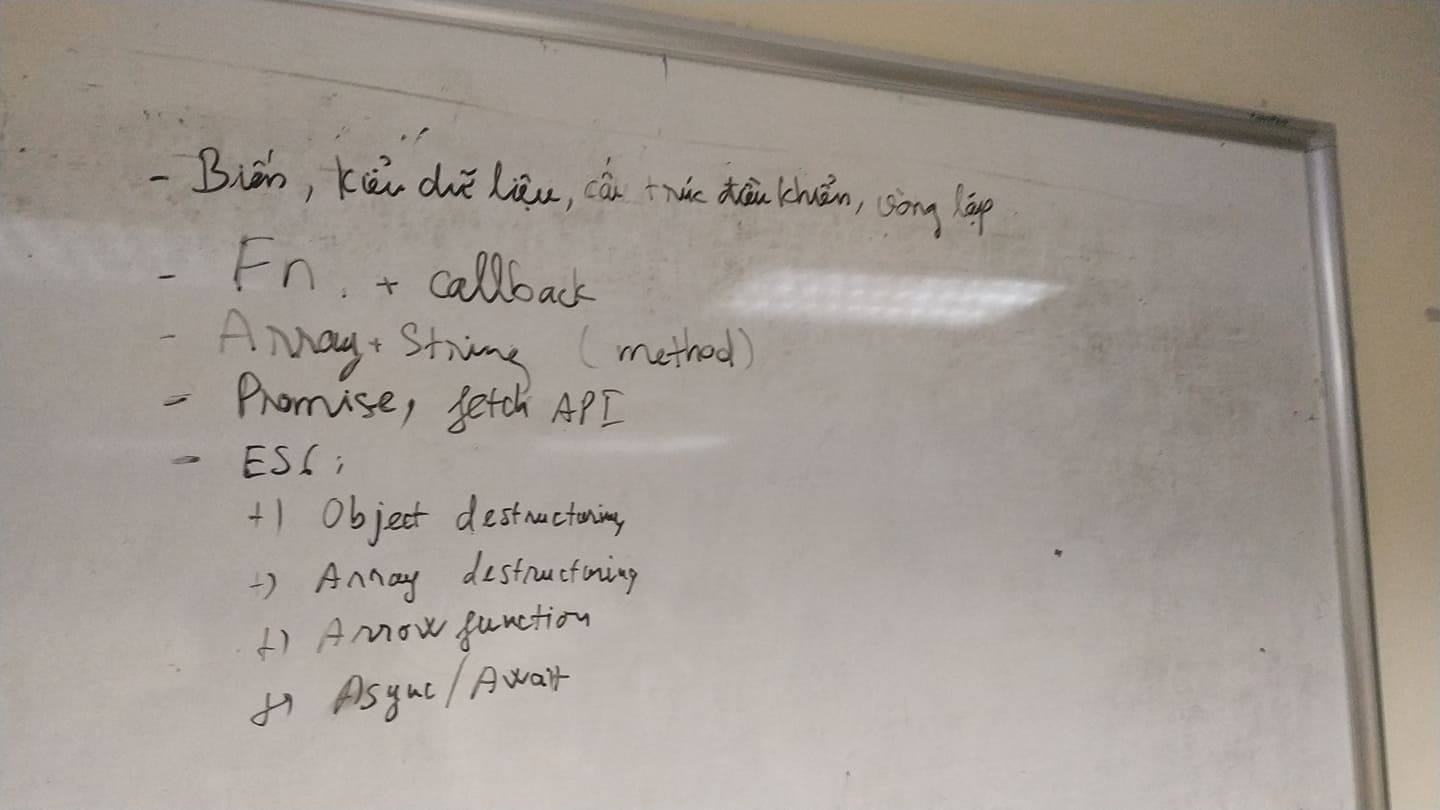 - Biến, kiểu dữ liệu, cấu trúc điều khiển, vòng lặp
- Fn. + callback
- Array + String (method)
- Promise, fetch API
- ES6:
+) Object destructuring
+) Array destructuring
+) Arrow function
+) Async/Await